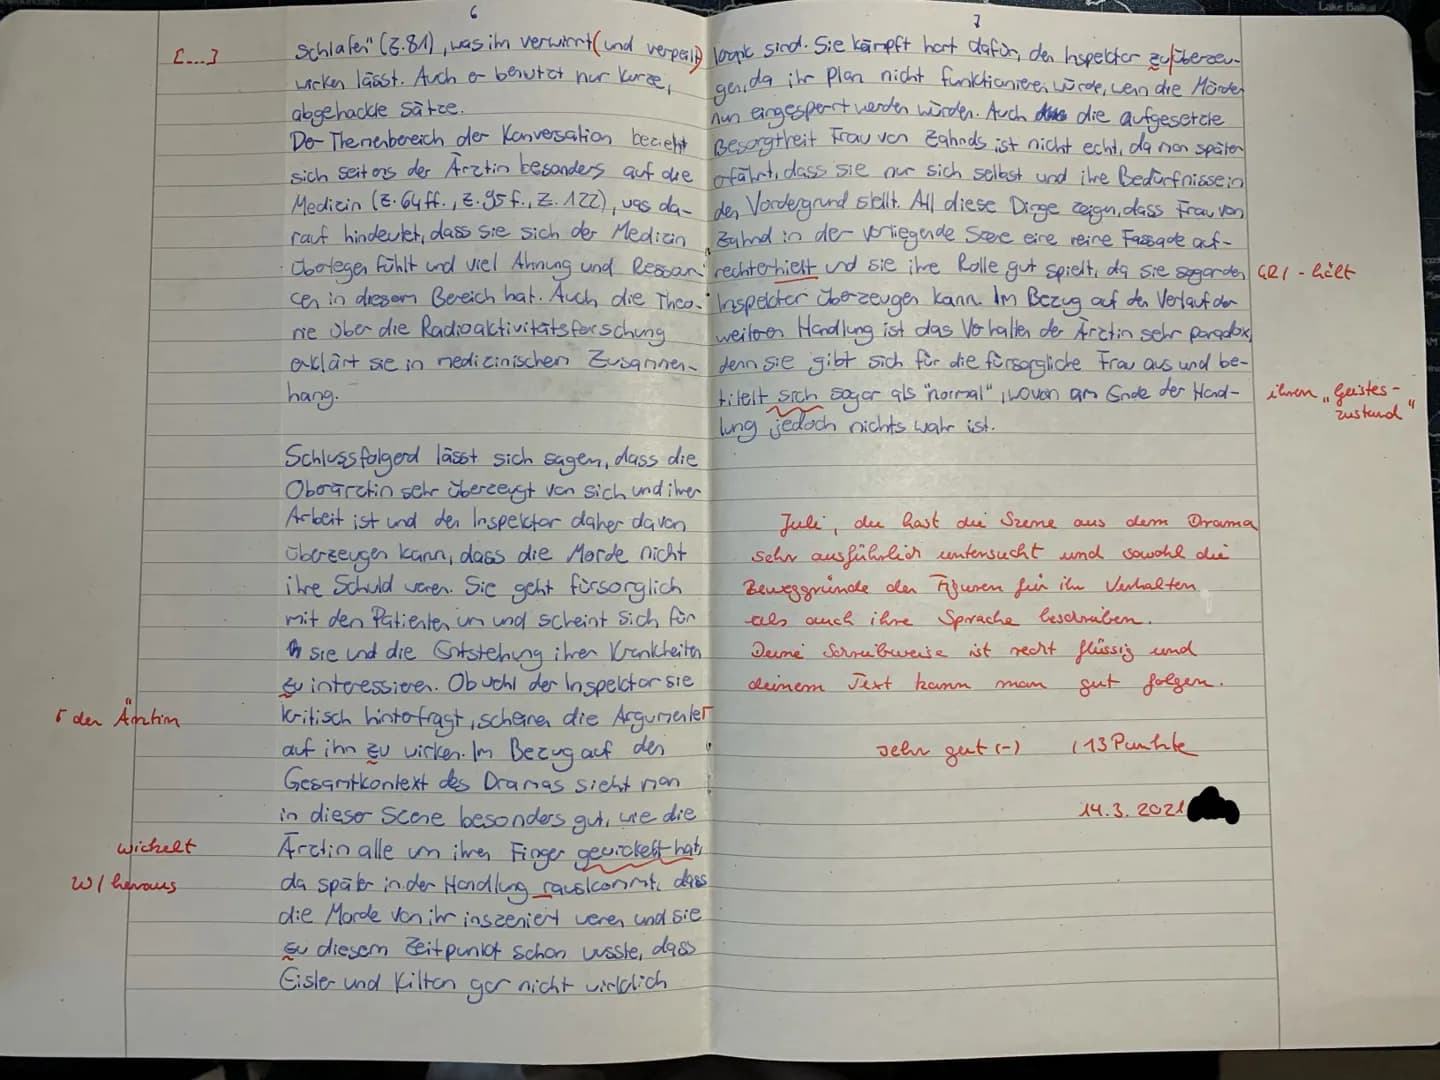 6
[...]
schlafen" (Z.81), was ihn verwirrt (und verpeilt)
wirken lässt. Auch er benutzt nur kurze,
abgehackte Sätze.
Der Themenbereich der Konversation bezieht
sich seitens der Ärztin besonders auf die
Medizin (Z. 64ff., Z. 95f., Z. 122), was da-
rauf hindeutet, dass sie sich der Medizin
überlegen fühlt und viel Ahnung und Ressour
cen in diesem Bereich hat. Auch die Theo-
rie über die Radioaktivitätsforschung
erklärt sie in medizinischen Zusammen-
hang.
Schlussfolgerd lässt sich sagen, dass die
Oberärztin sehr überzeugt von sich und ihrer
Arbeit ist und den Inspektor daher davon
überzeugen kann, dass die Morde nicht
ihre Schuld waren. Sie geht fürsorglich
mit den Patienten um und scheint sich für
sie und die Entstehung ihrer Krankheiten
zu interessieren. Obwohl der Inspektor sie
kritisch hinterfragt, scheinen die Argumente
der Ärztin
auf ihn zu wirken. Im Bezug auf den
Gesamtkontext des Dramas sieht man
in dieser Szene besonders gut, wie die
Ärztin alle um ihren Finger gewickelt hat,
wickelt
da später in der Handlung rauskommt, dass
W/ heraus
die Morde von ihr inszeniert waren und sie
zu diesem Zeitpunkt schon wusste, dass
Eisler und Kilton gar nicht wirklich
7
krank sind. Sie kämpft hart dafür, den Inspektor zu überzeu-
gen, da ihr Plan nicht funktionieren würde, wenn die Mörder
nun eingesperrt werden würden. Auch die aufgesetzte
Besorgtheit Frau von Zahnds ist nicht echt, da man später
erfährt, dass sie nur sich selbst und ihre Bedürfnisse in
den Vordergrund stellt. All diese Dinge zeigen, dass Frau von
Zahnd in der vorliegende Szene eine reine Fassade auf-
rechterhielt und sie ihre Rolle gut spielt, da sie sogar den
GR/ - hält
Inspektor überzeugen kann. Im Bezug auf den Verlauf der
weiteren Handlung ist das Verhalten der Ärztin sehr paradox,
denn sie gibt sich für die fürsorgliche Frau aus und be-
titelt sich sogar als "normal", wovon am Ende der Hand-
ihren „Geistes-
zustand"
lung jedoch nichts wahr ist.
Juli, du hast die Szene aus dem Drama
sehr ausführlich untersucht und sowohl die
Beweggründe der Figuren für ihr Verhalten
als auch ihre Sprache beschrieben.
Deine Schreibweise ist recht flüssig und
deinem Text kann man gut folgen.
sehr gut (-) / 13 Punkte
14.3.2021
Lake Baikal